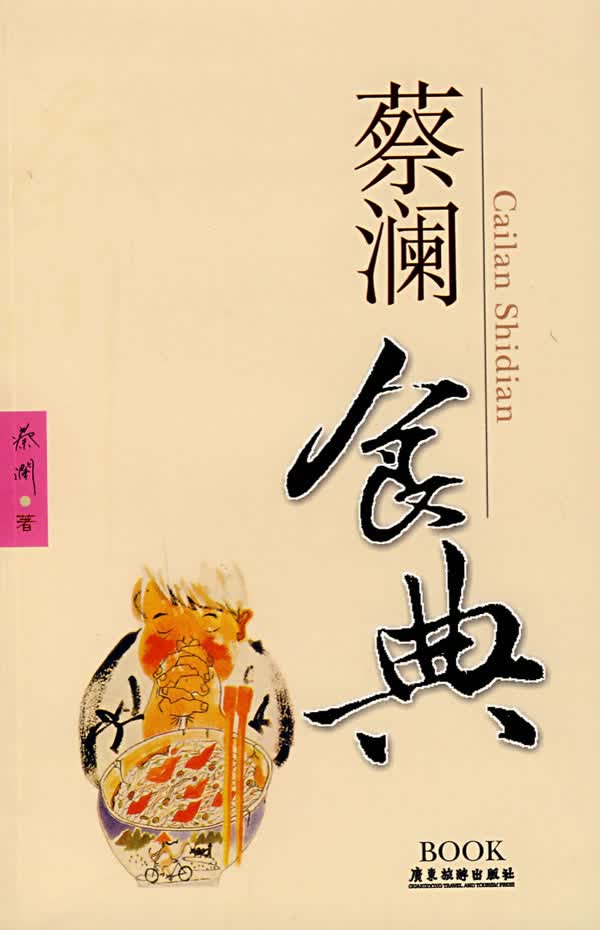 蔡澜
食典
Cailan Shidian
蔡澜·著
BOOK
廣東旅游出版社
GUANGDONG TRAVEL AND TOURISM PRESS